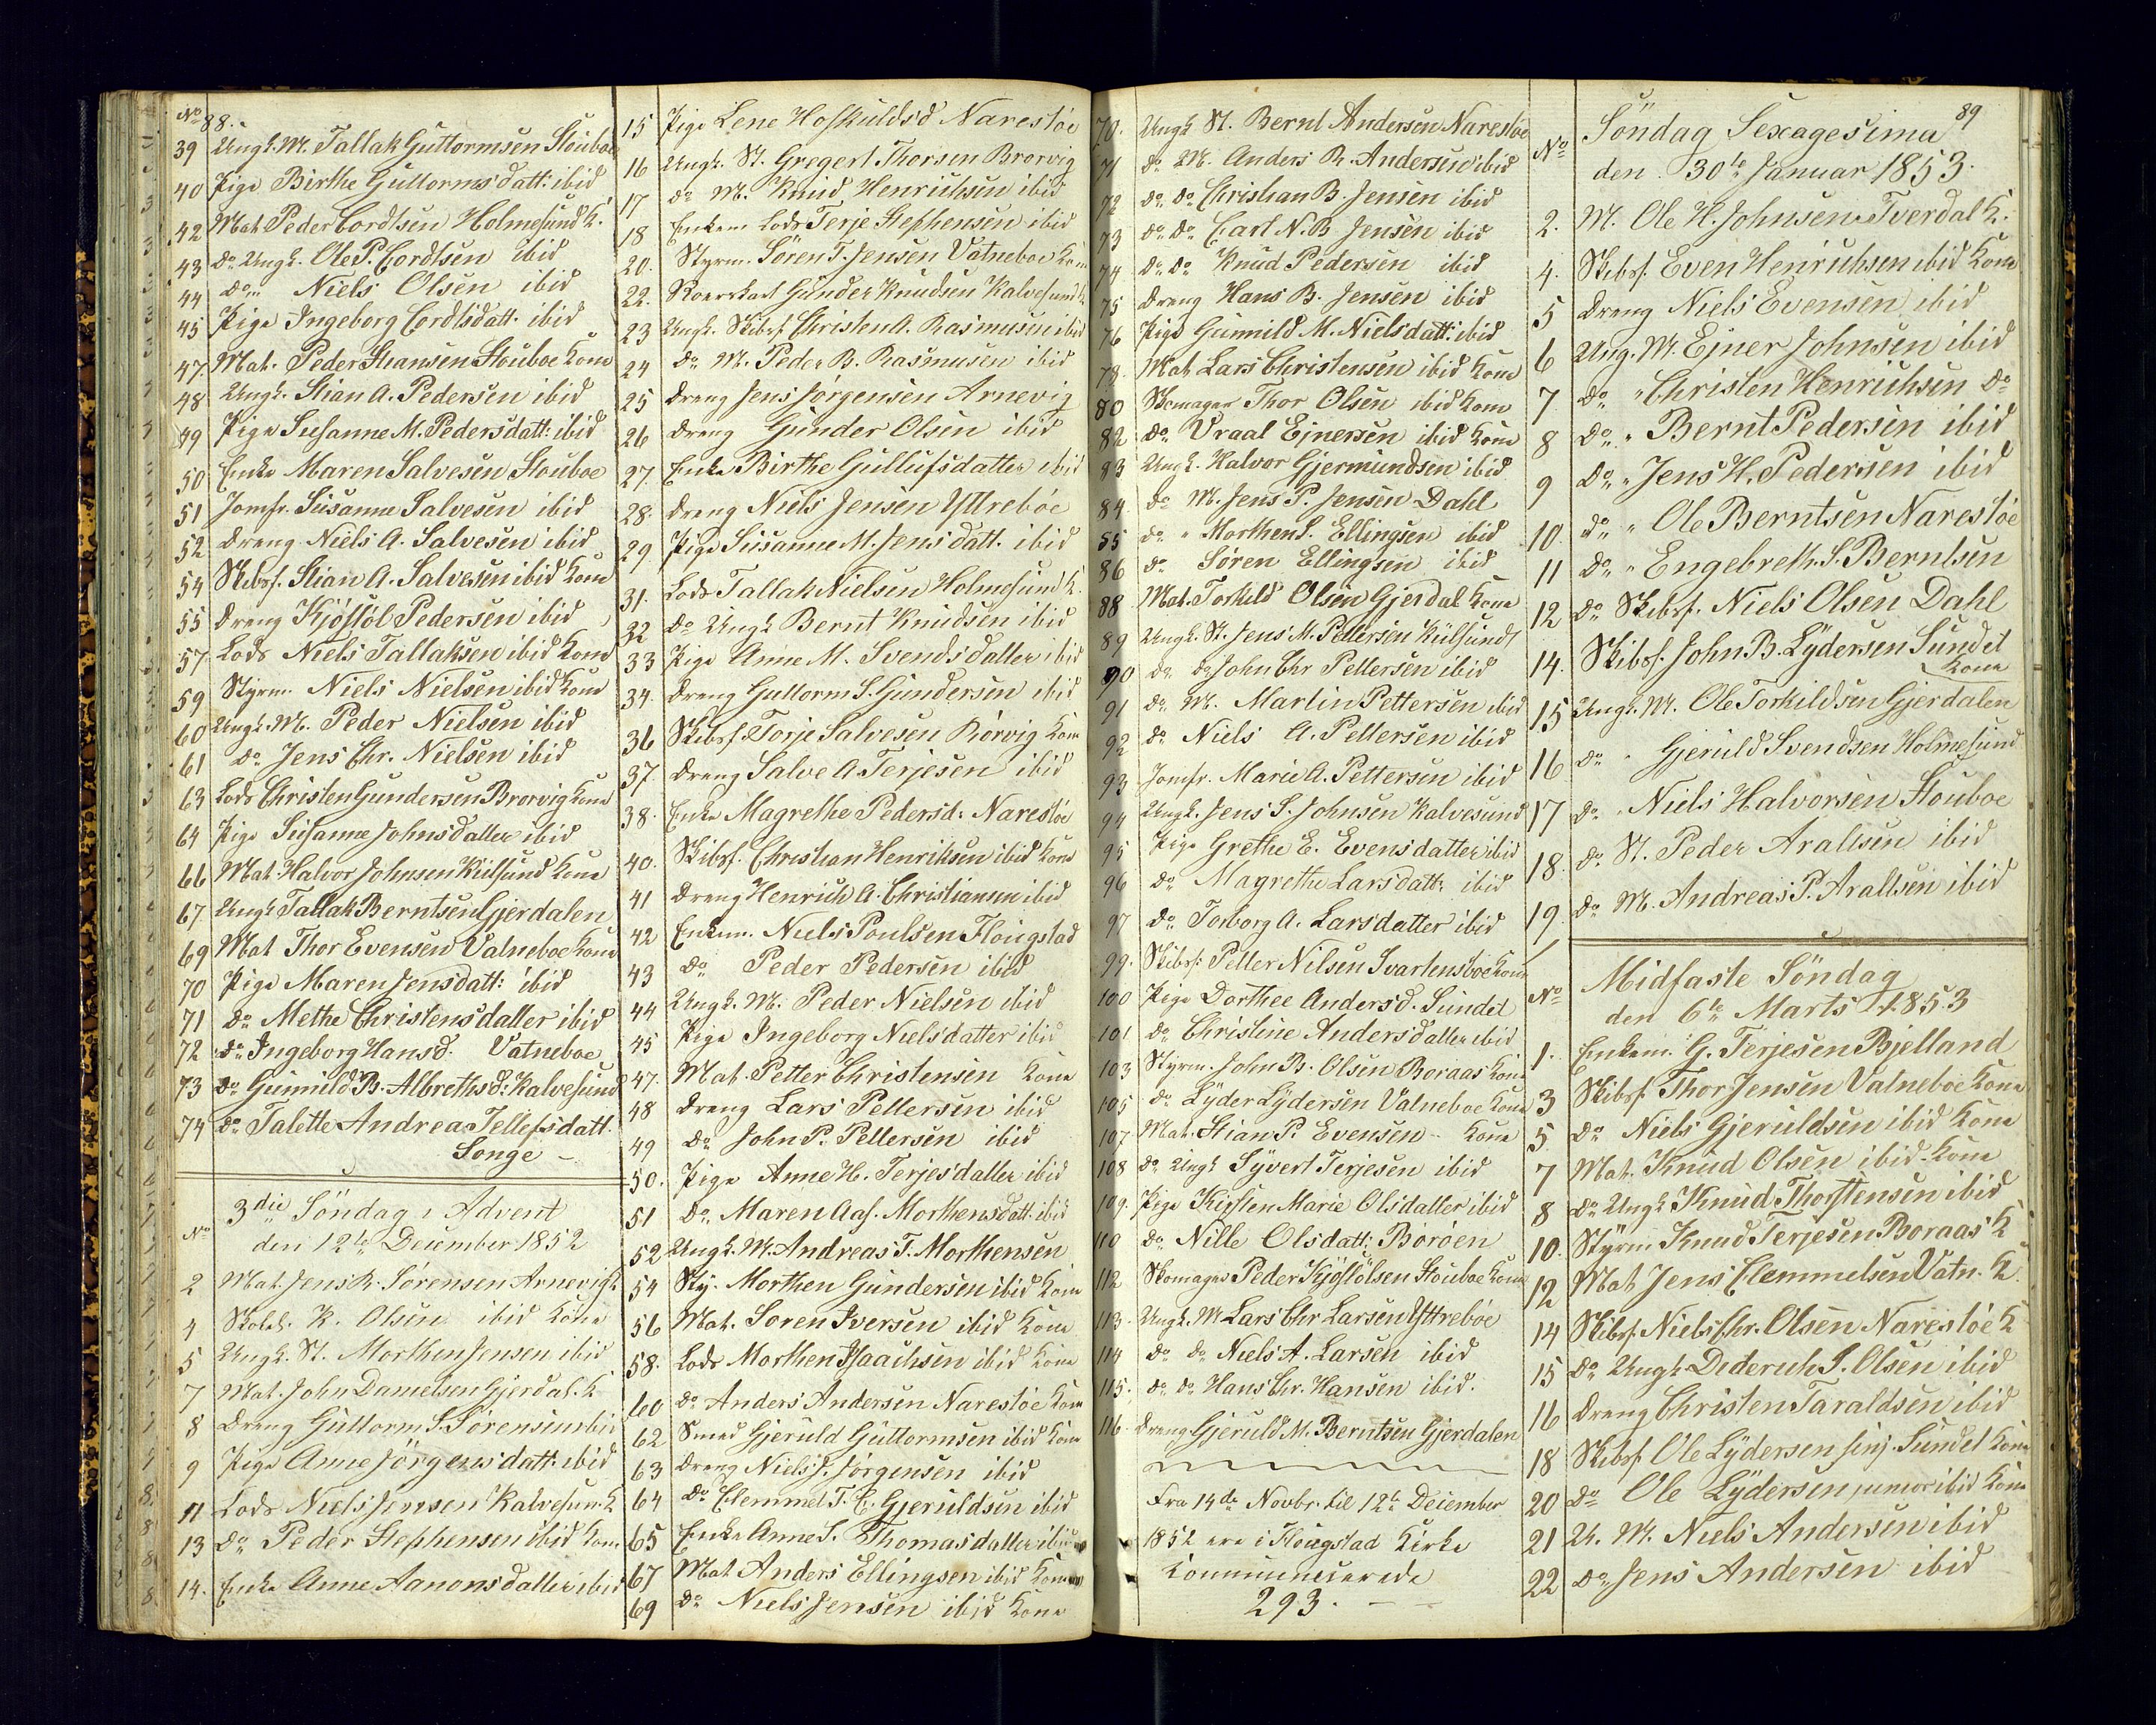 No 88.
39 Ungk. M. Tallak Guttormsen Stouboe
40 Pige Birthe Guttormsdatt: ibid
42 Mat. Peder Cordtsen Holmesund K.
43 do Ungk. Ole P. Cordtsen ibid
44 do Niels Olsen ibid
45 Pige Ingeborg Cordtsdatt. ibid
47 Mat. Peder Stiansen Stouboe Kone
48 Ungk. Stian A. Pedersen ibid
49 Pige Susanne M. Pedersdatt: ibid
50 Enke Maren Salvesen Stouboe
51 Jomfr. Susanne Salvesen ibid
52 Dreng Niels A. Salvesen ibid
54 Skibsf. Stian A. Salvesen ibid Kone
55 Dreng Kjöstöl Pedersen ibid
57 Lods Niels Tallaksen ibid Kone
59 Styrm. Niels Nielsen ibid Kone
60 Ungk. M. Peder Nielsen ibid
61 do Jens Chr. Nielsen ibid
63 Lods Christen Gundersen Brorvig Kone
64 Pige Susanne Johnsdatter ibid
66 Mat. Halvor Johnsen Kiilsund Kone
67 Ungk Tallak Berntsen Gjerdalen
69 Mat Thor Evensen Vatneboe Kone
70 Pige Maren Jensdatt: ibid
71 do Methe Christensdatter ibid
72 do Ingeborg Hansd. Vatneboe
73 do Gunnild B. Albrethsd: Kalvesund
74 do Talette Andrea Tellefsdatt.
Songe
3die Söndag i Advent
No den 12te December 1852
2 Mat. Jens R. Sörensen Arnevig K
4 Skolel. K. Olsen ibid Kone
5 Ungk. St. Morthen Jensen ibid
7 Mat. John Danielsen Gjerdal. K
8 Dreng Guttorm S. Sörensen ibid
9 Pige Anne Jörgensdatt: ibid
11 Lods Niels Jensen Kalvesun. K
13 do Peder Stephensen ibid Kone
14. Enke Anne Aanonsdatter ibid
15 Pige Lene Hofskuldsd Narestöe
16 Ungk. St. Gregert Thorsen Brorvig
17 do M. Knud Henrichsen ibid
18 Enkem Lods Terje Stephensen ibid
20. Styrm. Sören T. Jensen Vatneboe Kone
22. Gunder Knudsen Kalvesund K
23 Ungk. Skibsf. Christen A. Rasmusen ibid
24 do M. Peder B. Rasmusen ibid
25 Dreng Jens Jörgensen Arnevig
26 Dreng Gunder Olsen ibid
27. Enke Birthe Gullufsdatter ibid
28. Dreng Niels Jensen Yttreböe
29 Pige Susanne M. Jensdatt. ibid
31. Lods Tallak Nielsen Holmesund K.
32 do Ungk Bernt Knudsen ibid
33 Pige Anne M. Svendsdatter ibid
34. Dreng Guttorm S. Gundersen ibid
36 Skibsf. Torje Salvesen Rörvig Kone
37. Dreng Salve A. Terjesen ibid
38. Enke Magrethe Pedersd: Narestöe
40. Skibsf. Christian Henriksen ibid Kone
41 Dreng Henrich A. Christiansen ibid
42 Enkem. Niels Poulsen Flougstad
43 do Peder Pedersen ibid
44 Ungk. M. Peder Nielsen ibid
45 Pige Ingeborg Nielsdatter ibid
47. Mat. Petter Christensen Kone
48 Dreng Lars Pettersen ibid
49 do John P. Pettersen ibid
50. Pige Anne H. Terjesdatter ibid
51 do Maren Aas. Morthensdatt. ibid
52 Ungk. M. Andreas T. Morthensen
54 Sty. Morthen Gundersen ibid Kone
56 Mat. Soren Iversen ibid Kone
58. Lods Morthen Isaachsen ibid Kone
60 do Anders Andersen Narestöe Kone
62 Smed Gjeruld Guttormsen ibid Kone
63 Dreng Niels J. Jörgensen ibid
64 do Clemmet T. E. Gjeruldsen ibid
65 Enke Anne S. Thomasdatter ibid
67 Mat Anders Ellingsen ibid Kone
69 do Niels Jensen ibid Kone
70. Ungk St. Bernt Andersen Narestöe
71 do M. Anders R. Andersen ibid
72 do do Christian B. Jensen ibid
73 do do Carl N. B. Jensen ibid
74 do do Knud Pedersen ibid
75 Dreng Hans B. Jensen ibid
76 Pige Gunnild M. Nielsdatt: ibid
78. Mat Lars Christensen ibid Kone
80 Skomager Thor Olsen ibid Kone
82 do Vraal Ejnersen ibid Kone
83 Ungk. Halvor Gjermundsen ibid
84. do M. Jens P. Jensen Dahl
85 do " Morthen S. Ellingsen ibid
86 do Sören Ellingsen ibid
88 Mat. Torkild Olsen Gjerdal Kone
89 Ungk. St. Jens M. Pettersen Kiilsund
90 do do John Chr Pettersen ibid
91 do M. Martin Pettersen ibid
92 do Niels A. Pettersen ibid
93 Jomfr. Marie A. Pettersen ibid
94 Ungk. Jens S. Johnsen Kalvesund
95 Pige Grethe E. Evensdatter ibid
96 do Magrethe Larsdatt: ibid
97 do Torborg A. Larsdatter ibid
99. Skibsf. Petter Nilsen Svartensboe Kone
100 Pige Dorthee Andersd. Sundet
101 do Christine Andersdatter ibid
103 Styrm. John B. Olsen Boraas Kone
105 do Lyder Lydersen Vatneboe Kone
107. Mat. Stian P. Evensen Kone
108 do Ungk Syvert Terjesen ibid
109. Pige Kirsten Marie Olsdatter ibid
110 do Nille Olsdatt: Boröen
112 Skomager Peder Kjöstölsen Stouboe Kone
113. Ungk. M Lars Chr Larsen Yttreböe
114 do do Niels A. Larsen ibid
115. do do Hans Chr. Hansen ibid.
116. Dreng Gjeruld M. Berntsen Gjerdalen
Fra 14de Novbr. til 12te December
1852 ere i Flougstad Kirke
Kommunicerede
293.
89
Söndag Sexagesima
No den 30te Januar 1853.
2. M. Ole H. Johnsen Tverdal K.
4. Skibsf. Even Henrichsen ibid Kone
5 Dreng Niels Evensen ibid
6 Ung. M. Ejner Johnsen ibid
7. do " Christen Henrichsen do
8 do " Bernt Pedersen ibid
9 do " Jens H. Pedersen ibid
10. do " Ole Berntsen Narestöe
11 do " Engebreth S. Berntsen
12 do Skibsf. Niels Olsen Dahl
14. Skibsf. John B. Lydersen Sundet
Kone
15 Ungk. M. Ole Torkildsen Gjerdalen
16 do " Gjeruld Svendsen Holmesund
17 do " Niels Halvorsen Stouboe
18. do St. Peder Araltsen ibid
19. do M. Andreas P. Araltsen ibid
Midfaste Söndag
No den 6te Marts 1853
1. Enkem. G. Terjesen Bjelland
3 Skibsf. Thor Jensen Vatneboe Kone
5. do Niels Gjeruldsen ibid Kone
7 Mat. Knud Olsen ibid Kone
8 do Ungk Knud Thorstensen ibid
10. Styrm Knud Terjesen Boraas K
12 Mat Jens Clemmetsen Vatn. K.
14 Skibsf. Niels Chr. Olsen Narestöe K
15 do Ungk Diderich S. Olsen ibid
16 Dreng Christen Taraldsen ibid
18 Skibsf Ole Lydersen senj. Sundet Kone
20 do Ole Lydersen junior ibid Kone
21 U. M. Niels Andersen ibid
22 do Jens Andersen ibid